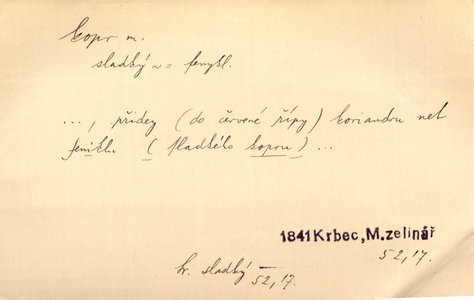 kopr m.
sladký ~ = fenykl.
..., přidej (do červené řípy) koriandru neb
feniklu (sladkého kopru) ...
1841 Krbec, M. zelinář
52,17.
k. sladký — 52,17.